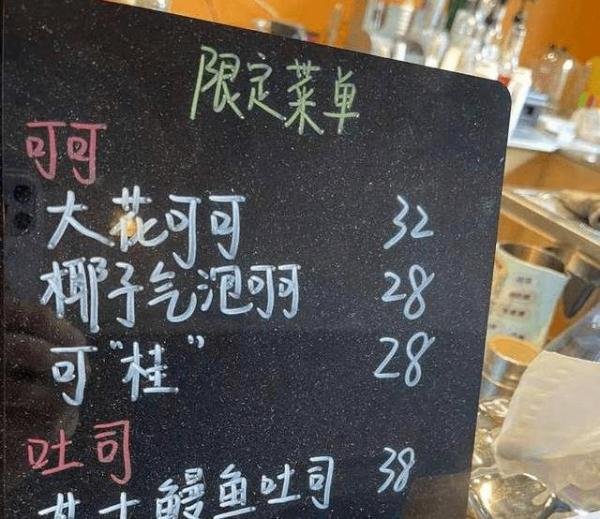 限定菜单
可可
大花可可 32
椰子气泡可可 28
可"桂" 28
吐司
芝士鳗鱼吐司 38